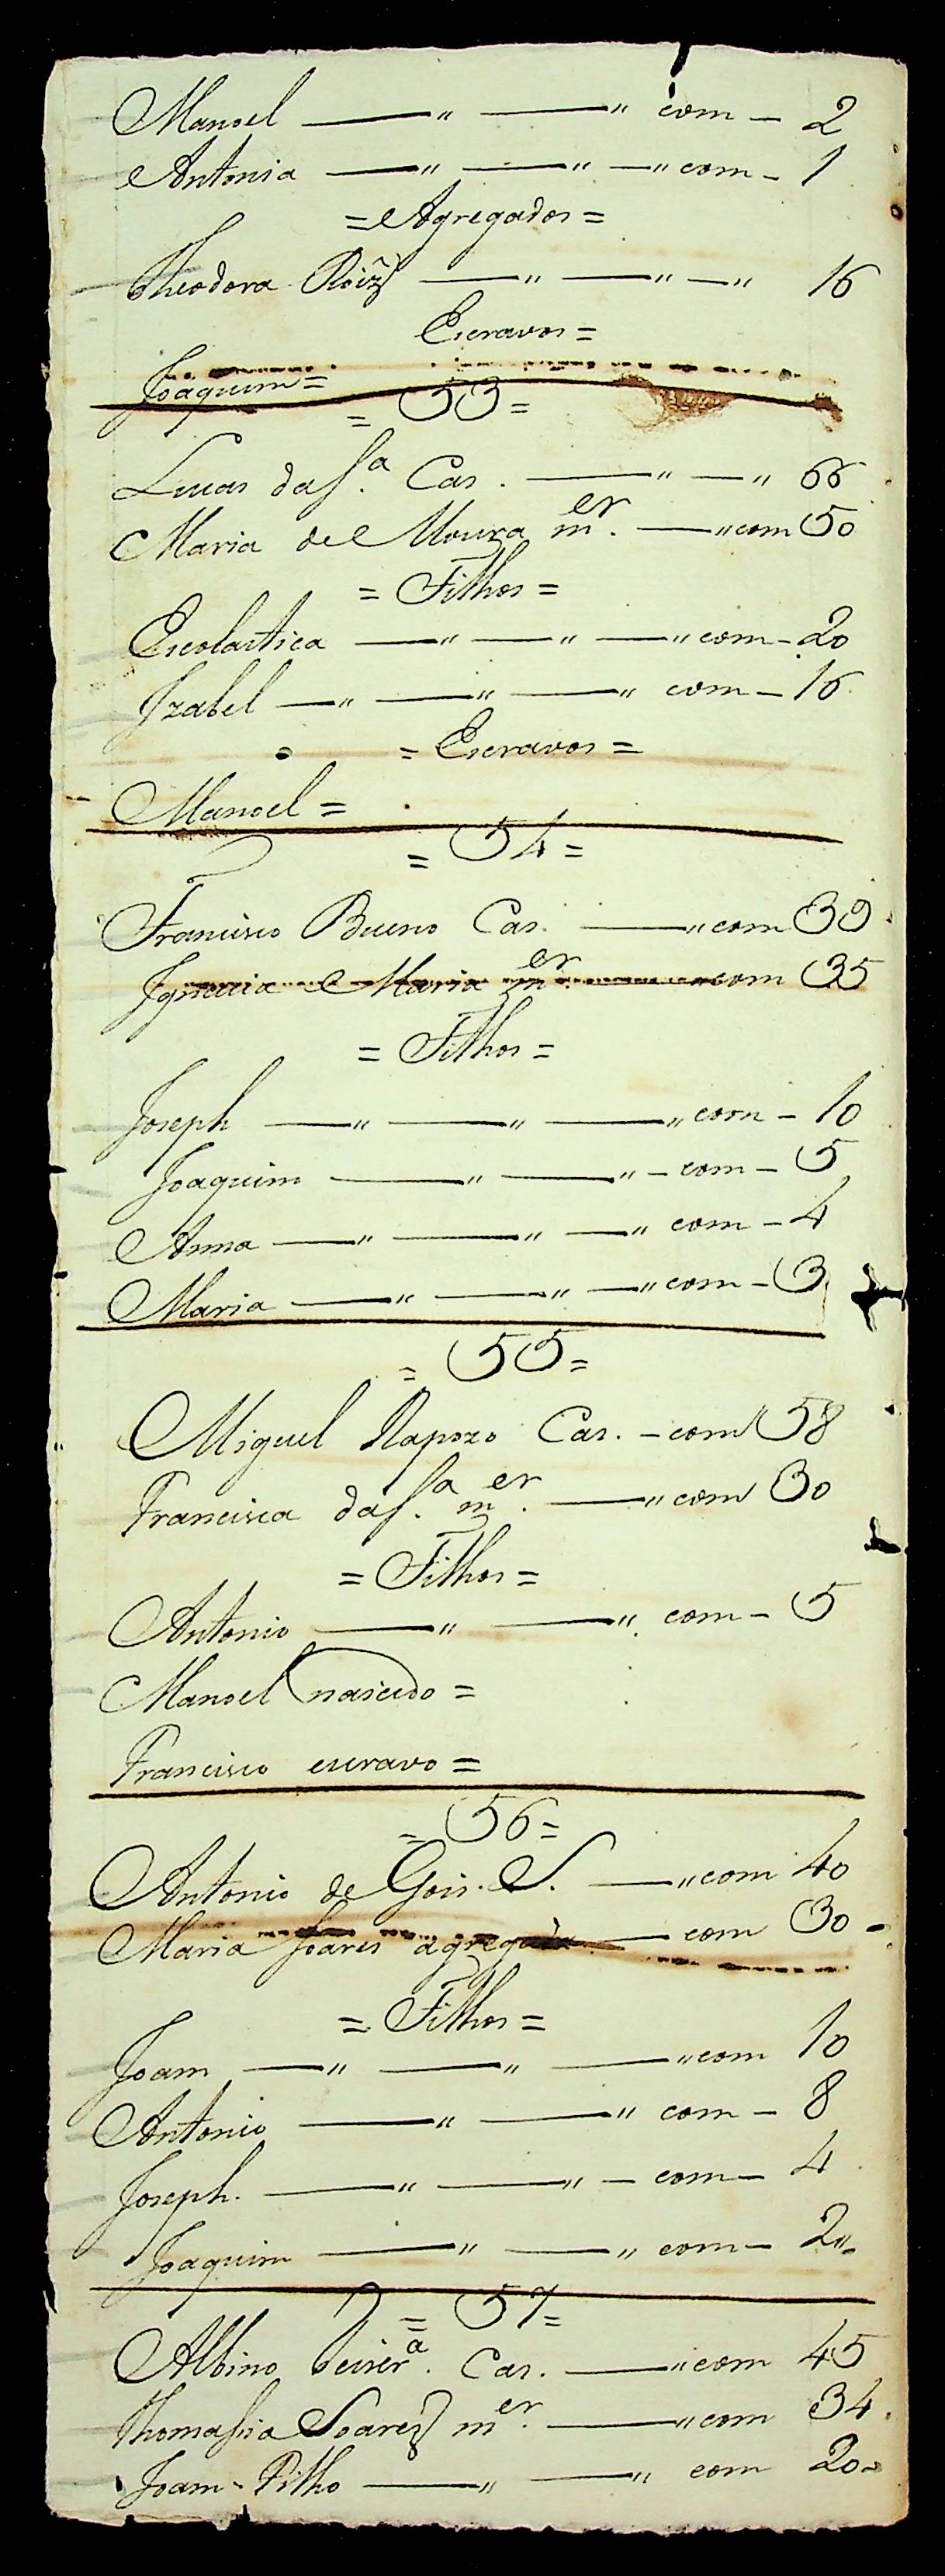 Manoel —— " —— " com — 2
Antonia —— " —— " — " com — 1
= Agregados =
Theodora Roiz —— " —— " — " 16
Escravos =
Joaquim =
= 53 =
Lucas da S.ª Cas. —— " — " 66
Maria de Moura m.er —— " com 50
= Filhos =
Escolastica —— " —— " —— " com — 20
Izabel — " —— " —— " com — 16
= Escravos =
Manoel =
= 54 =
Francisco Bueno Cas. —— " com 39
Ignacia Maria m.er —— com 35
= Filhos =
Joseph —— " —— " —— " com — 10
Joaquim —— " —— " — com — 5
Anna —— " —— " — " com — 4
Maria —— " —— " — " com — 3
= 55 =
Miguel Rapozo Cas. — com 58
Francisca da S.ª m.er —— " com 30
= Filhos =
Antonio —— " —— " com — 5
Manoel nascido =
Francisco escravo =
= 56 =
Antonio de Gois. S. —— " com 40
Maria Soares agregada — com 30 —
= Filhos =
Joam —— " —— " —— " com 10
Antonio —— " —— " com — 8
Joseph. —— " —— " — com — 4
Joaquim —— " —— " com — 2 "
= 57 =
Albino Teixr.ª Cas. —— " com 45
Thomasia Soares m.er —— " com 34.
Joam - Filho —— " —— " com 20 —